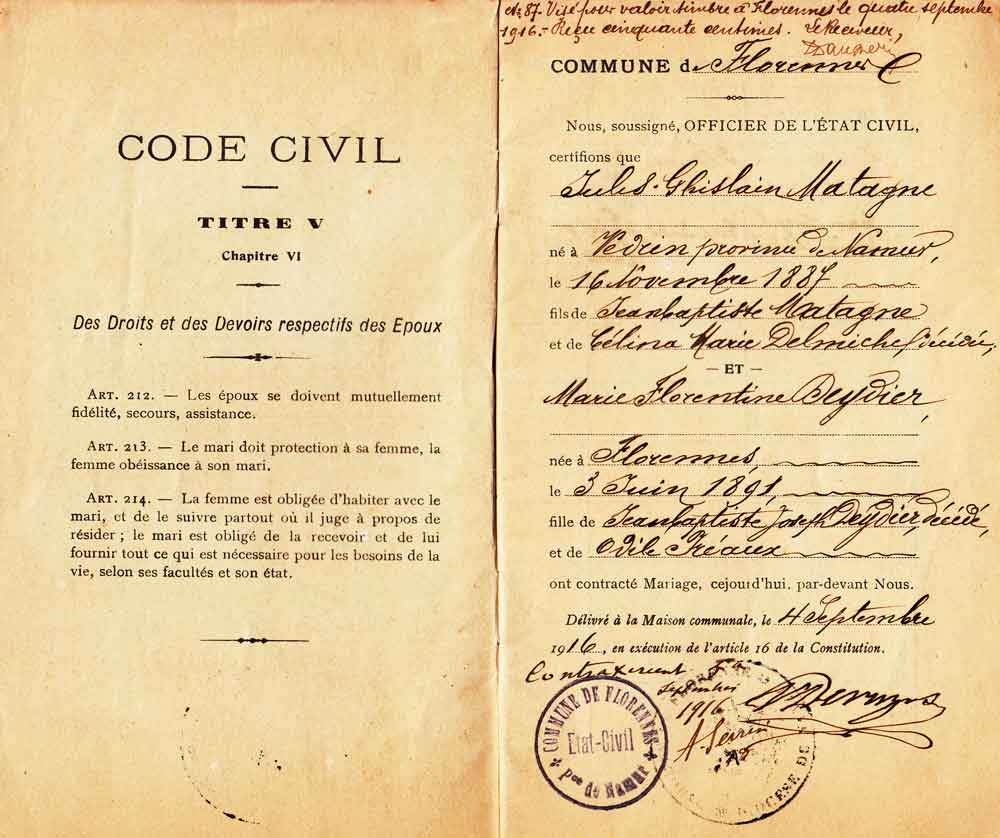 CODE CIVIL
TITRE V
Chapitre VI
Des Droits et des Devoirs respectifs des Epoux
ART. 212. — Les époux se doivent mutuellement
fidélité, secours, assistance.
ART. 213. — Le mari doit protection à sa femme, la
femme obéissance à son mari.
ART. 214. — La femme est obligée d'habiter avec le
mari, et de le suivre partout où il juge à propos de
résider ; le mari est obligé de la recevoir et de lui
fournir tout ce qui est nécessaire pour les besoins de la
vie, selon ses facultés et son état.
No 87. Visé pour valoir timbre à Florennes le quatre septembre
1916.- Reçu cinquante centimes. Le Receveur,
COMMUNE de Florennes
Nous, soussigné, OFFICIER DE L'ÉTAT CIVIL,
certifions que
Jules-Ghislain Matagne
né à Vedrin province de Namur,
le 16 Novembre 1887
fils de Jeanbaptiste Matagne
et de Célina Marie Delmiche, décédée,
— ET —
Marie Florentine Deydier,
née à Florennes,
le 3 Juin 1891,
fille de Jeanbaptiste Joseph Deydier, décédé,
et de Odile Tréaux
ont contracté Mariage, cejourd'hui, par-devant Nous.
Délivré à la Maison communale, le 4 Septembre
1916, en exécution de l'article 16 de la Constitution.
Contraxerunt
septembris
1916
COMMUNE DE FLORENNES
Etat-Civil
Pce de Namur